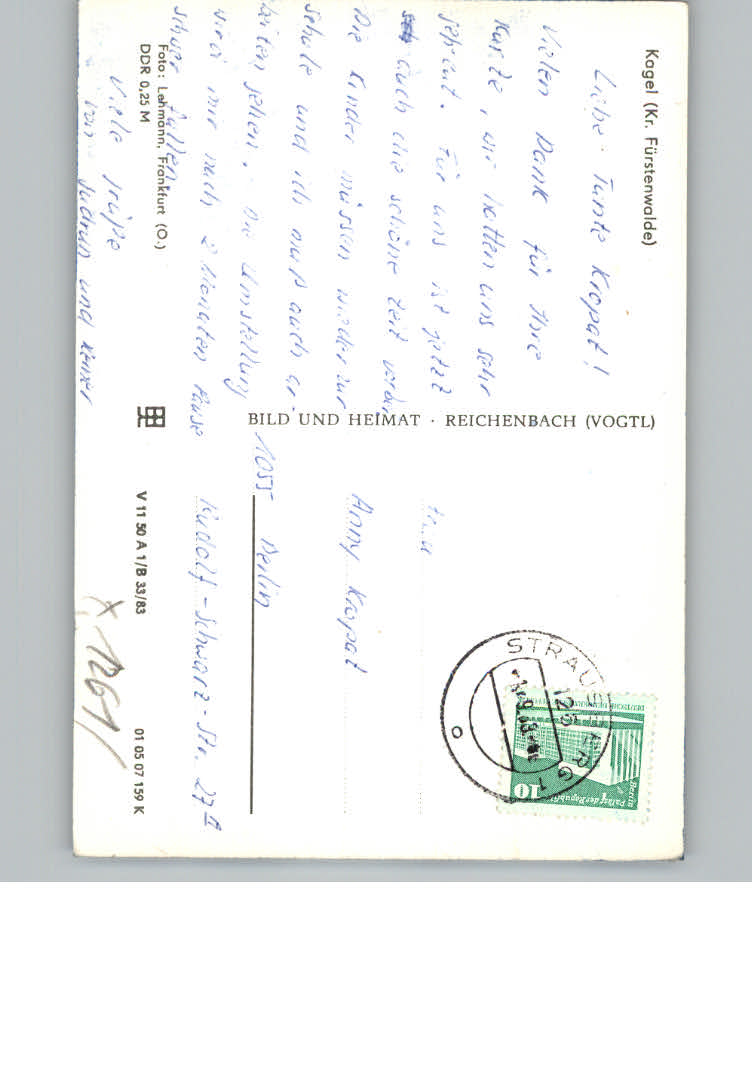 Kagel (Kr. Fürstenwalde)
Liebe Tante Kropat!
Vielen Dank für Ihre
Karte, wir hatten uns sehr
gefreut. Für uns ist jetzt
auch die schöne Zeit vorbei
Die Kinder müssen wieder zur
Schule und ich muß auch ar-
beiten gehen. Die Umstellung
wird mir nach 2 Monaten Pause
schwer fallen.
Viele Grüße
von Gudrun und
Foto: Lehmann, Frankfurt (O.)
DDR 0,25 M
BILD UND HEIMAT · REICHENBACH (VOGTL)
Frau
Anny Kropat
1055 Berlin
Rudolf-Schwarz-Str. 27
V 11 50 A 1/B 33/83
01 05 07 159 K
1261/
STRAUSBERG 1
126
10
Berlin Palast der Republik